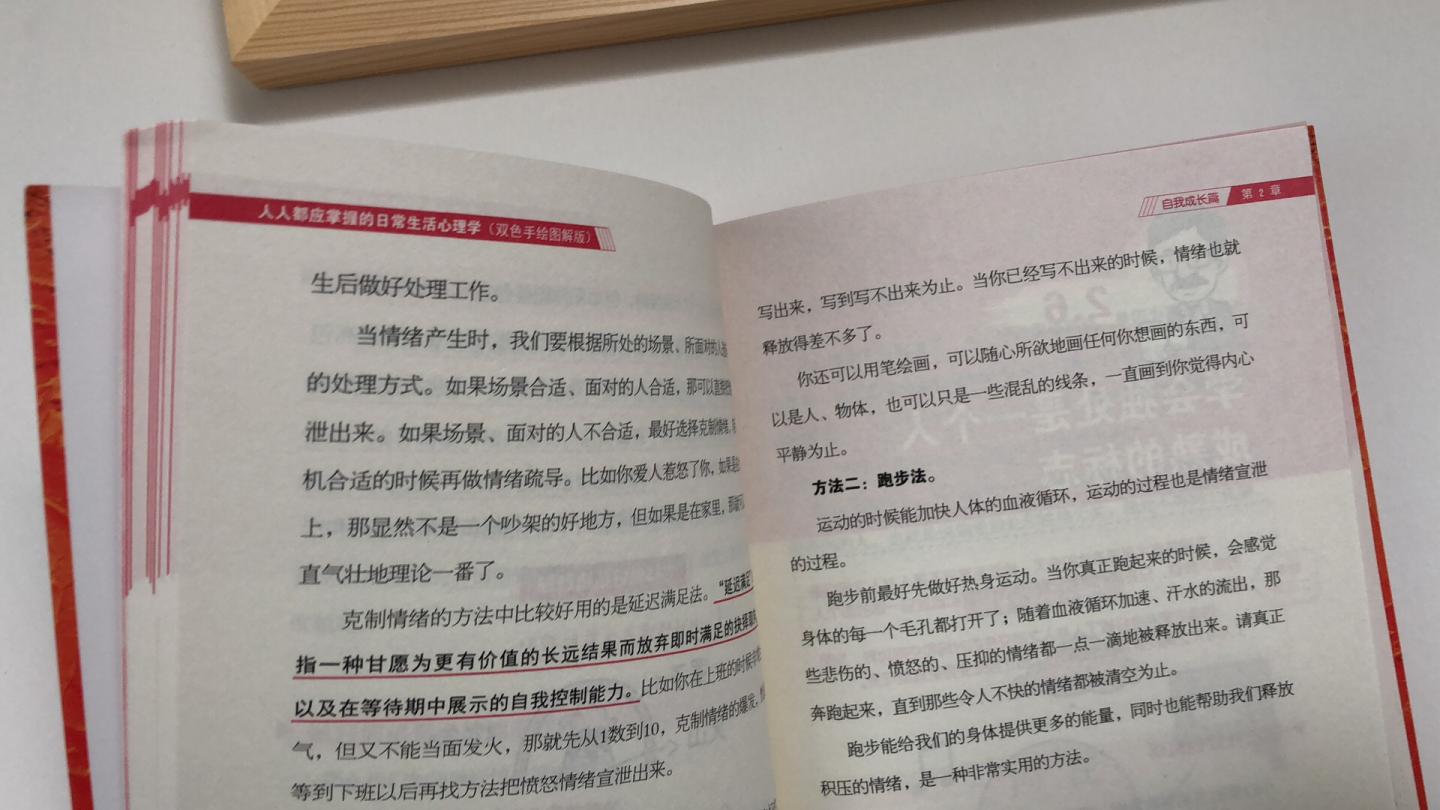 人人都应掌握的日常生活心理学（双色手绘图解版）
生后做好处理工作。
当情绪产生时，我们要根据所处的场景、所面对的人
的处理方式。如果场景合适、面对的人合适，那可以直接
泄出来。如果场景、面对的人不合适，最好选择克制情绪，
机合适的时候再做情绪疏导。比如你爱人惹怒了你，如果是
上，那显然不是一个吵架的好地方，但如果是在家里，那
直气壮地理论一番了。
克制情绪的方法中比较好用的是延迟满足法。“延迟满足
指一种甘愿为更有价值的长远结果而放弃即时满足的抉择
以及在等待期中展示的自我控制能力。比如你在上班的时候
气，但又不能当面发火，那就先从1数到10，克制情绪的爆发，
等到下班以后再找方法把愤怒情绪宣泄出来。
自我成长篇 第 2 章
写出来，写到写不出来为止。当你已经写不出来的时候，情绪也就
释放得差不多了。
你还可以用笔绘画，可以随心所欲地画任何你想画的东西，可
以是人、物体，也可以只是一些混乱的线条，一直画到你觉得内心
平静为止。
方法二：跑步法。
运动的时候能加快人体的血液循环，运动的过程也是情绪宣泄
的过程。
跑步前最好先做好热身运动。当你真正跑起来的时候，会感觉
身体的每一个毛孔都打开了；随着血液循环加速、汗水的流出，那
些悲伤的、愤怒的、压抑的情绪都一点一滴地被释放出来。请真正
奔跑起来，直到那些令人不快的情绪都被清空为止。
跑步能给我们的身体提供更多的能量，同时也能帮助我们释放
积压的情绪，是一种非常实用的方法。